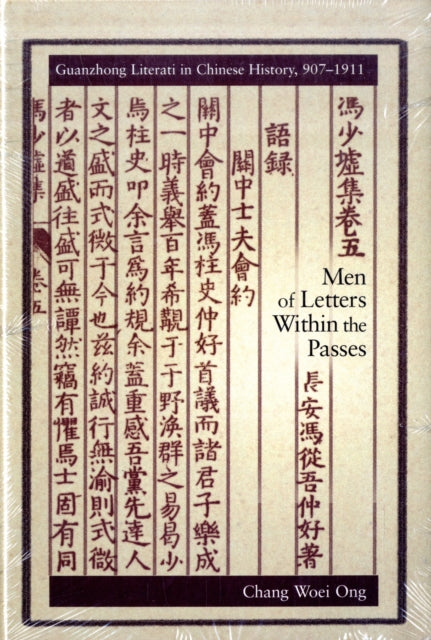 Guanzhong Literati in Chinese History, 907–1911
馮少墟集卷五
長安馮從吾仲好著
語錄
關中士夫會約
關中會約蓋馮柱史仲好首議而諸君子樂成
之一時義舉百年希覯于于野渙群之易曷少
焉柱史叩余言爲約規余蓋重感吾黨先達人
文之盛而式微于今也玆約誠行無渝則式微
者以道盛往盛可無譚然竊有懼焉士固有同
馮少墟集
卷五
Men
of Letters
Within the
Passes
Chang Woei Ong